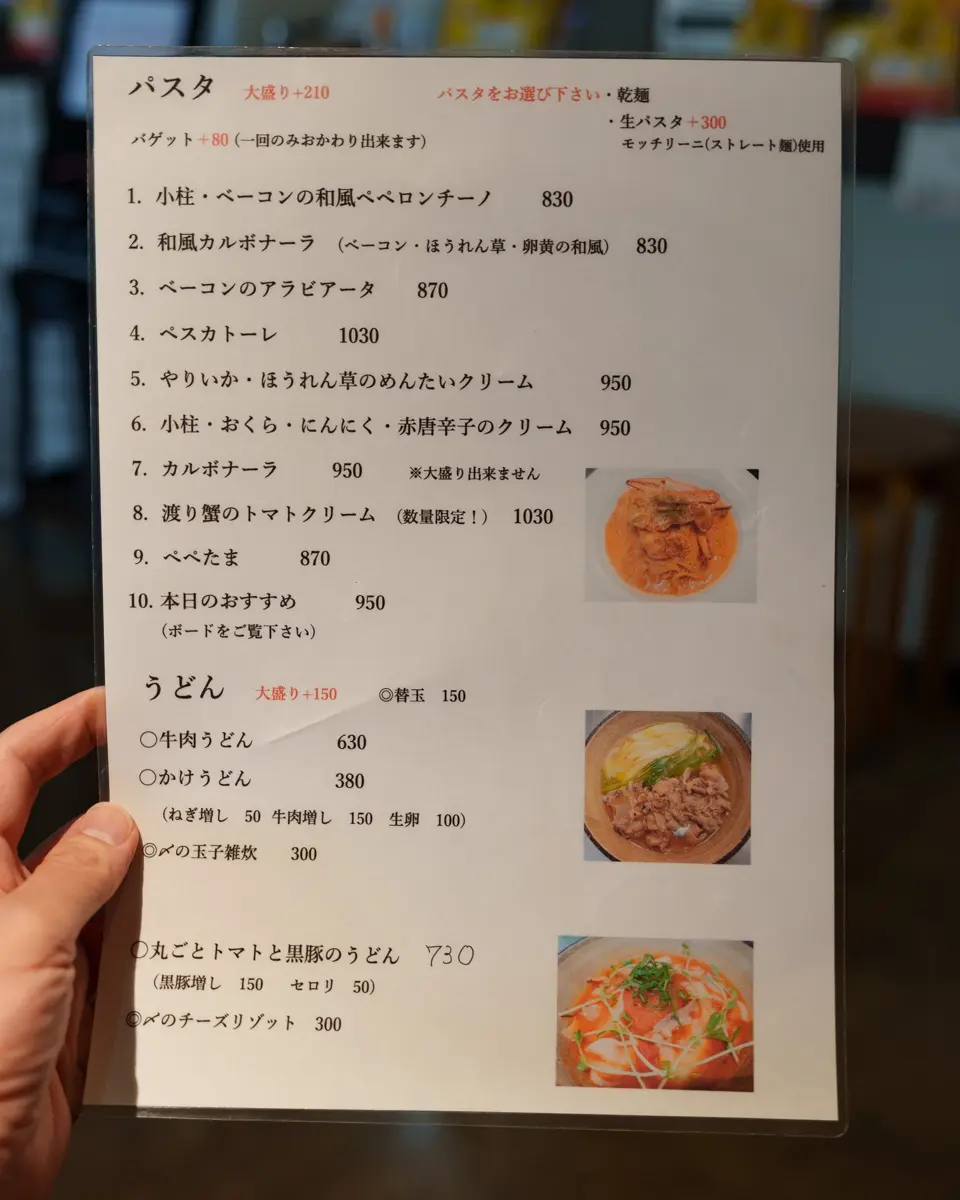 パスタ 大盛り+210 パスタをお選び下さい・乾麺
・生パスタ+300
バゲット+80 (一回のみおかわり出来ます) モッチリーニ(ストレート麺)使用
1. 小柱・ベーコンの和風ペペロンチーノ 830
2. 和風カルボナーラ (ベーコン・ほうれん草・卵黄の和風) 830
3. ベーコンのアラビアータ 870
4. ペスカトーレ 1030
5. やりいか・ほうれん草のめんたいクリーム 950
6. 小柱・おくら・にんにく・赤唐辛子のクリーム 950
7. カルボナーラ 950 ※大盛り出来ません
8. 渡り蟹のトマトクリーム (数量限定！) 1030
9. ペペたま 870
10. 本日のおすすめ 950
(ボードをご覧下さい)
うどん 大盛り+150 ◎替玉 150
○牛肉うどん 630
○かけうどん 380
(ねぎ増し 50 牛肉増し 150 生卵 100)
◎〆の玉子雑炊 300
○丸ごとトマトと黒豚のうどん 730
(黒豚増し 150 セロリ 50)
◎〆のチーズリゾット 300